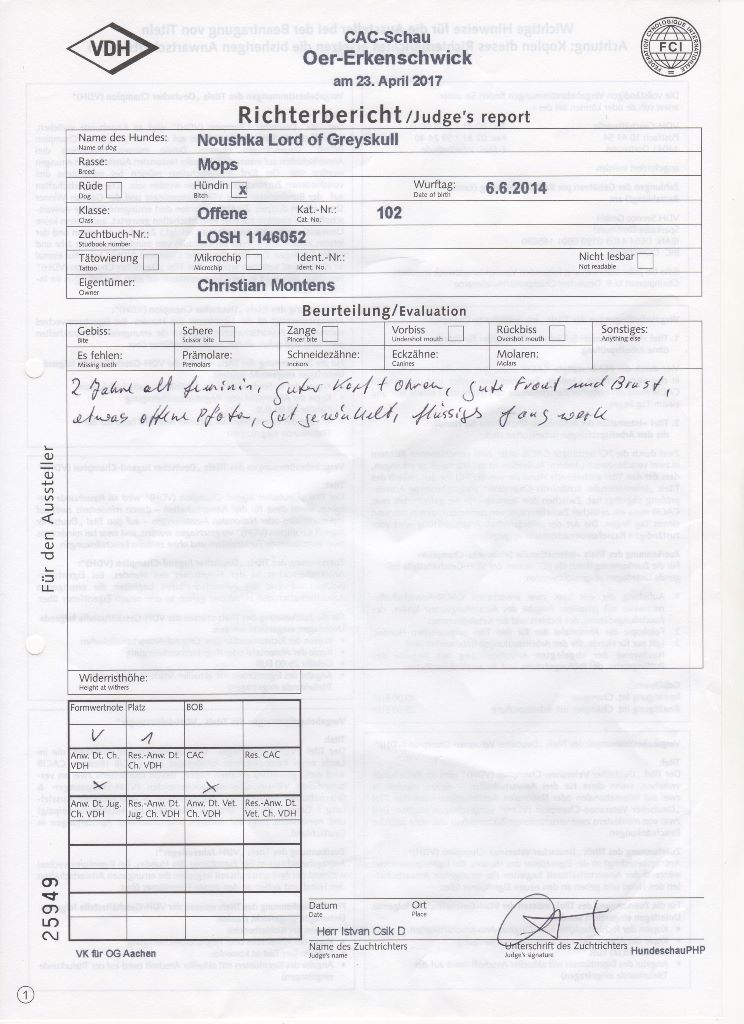 VDH
CAC-Schau
Oer-Erkenschwick
am 23. April 2017
FEDERATION CYNOLOGIQUE INTERNATIONALE
FCI
Richterbericht/Judge's report
Name des Hundes: Noushka Lord of Greyskull
Name of dog
Rasse: Mops
Breed
Rüde Hündin x Wurftag: 6.6.2014
Dog Bitch Date of birth
Klasse: Offene Kat.-Nr.: 102
Class Cat. No.
Zuchtbuch-Nr.: LOSH 1146052
Studbook number
Tätowierung Mikrochip Ident.-Nr.: Nicht lesbar
Tattoo Microchip Ident. No. Not readable
Eigentümer: Christian Montens
Owner
Beurteilung/Evaluation
Gebiss: Schere Zange Vorbiss Rückbiss Sonstiges:
Bite Scissor bite Pincer bite Undershot mouth Overshot mouth Anything else
Es fehlen: Prämolare: Schneidezähne: Eckzähne: Molaren:
Missing teeth Premolars Incisors Canines Molars
2 Jahre alt feminin, guter Kopf + Ohren, gute Front und Brust,
etwas offene Pfoten, gut gewinkelt, flüssiges Gangwerk
Für den Aussteller
Widerristhöhe:
Height at withers
Formwertnote Platz BOB
V 1
Anw. Dt. Ch. VDH Res.-Anw. Dt. Ch. VDH CAC Res. CAC
x x
Anw. Dt. Jug. Ch. VDH Res.-Anw. Dt. Jug. Ch. VDH Anw. Dt. Vet. Ch. VDH Res.-Anw. Dt. Vet. Ch. VDH
25949
Datum Ort
Date Place
Herr Istvan Csik D
Name des Zuchtrichters Unterschrift des Zuchtrichters HundeschauPHP
Judge's name Judge's signature
VK für OG Aachen
1